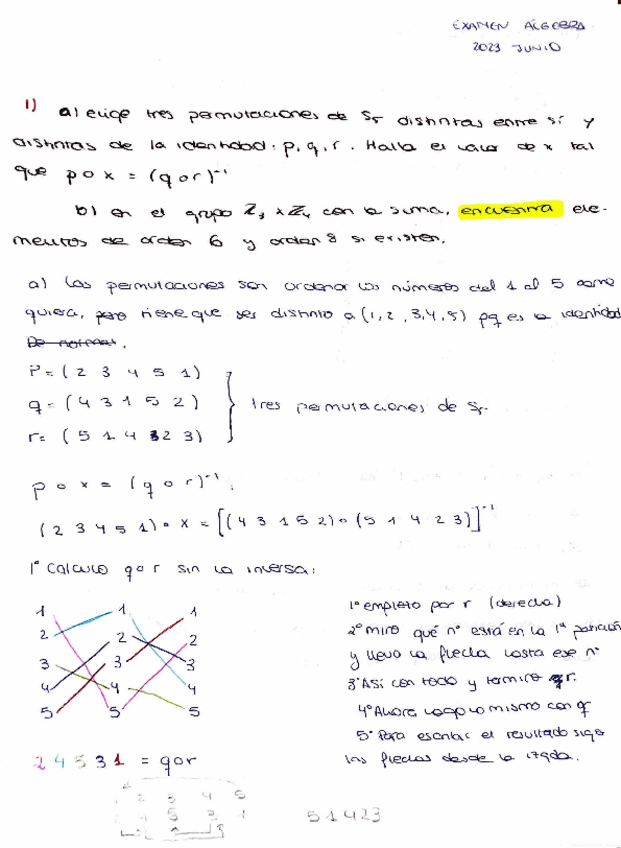 EXAMEN ÁLGEBRA
2023 JUNIO
1) a) elige tres permutaciones de S5 distintas entre sí y
distintas de la identidad: p, q, r. Halla el valor de x tal
que p o x = (q o r)⁻¹
b) en el grupo Z3 x Z4 con la suma, encuentra ele-
mentos de orden 6 y orden 8 si existen.
a) Las permutaciones son ordenar los números del 1 al 5 como
quiera, pero tiene que ser distinto a (1, 2, 3, 4, 5) pq es la identidad
De normal.
p = (2 3 4 5 1)
q = (4 3 1 5 2) tres permutaciones de S5.
r = (5 1 4 2 3)
p o x = (q o r)⁻¹:
(2 3 4 5 1) o x = [(4 3 1 5 2) o (5 1 4 2 3)]⁻¹
1º Calculo q o r sin la inversa:
1 1 1
2 2 2
3 3 3
4 4 4
5 5 5
1º empiezo por r (derecha)
2º miro qué nº está en la 1ª posición
y llevo la flecha hasta ese nº
3º Así con todo y termino r.
4º Ahora hago lo mismo con q
5º Para escribir el resultado sigo
las flechas desde la izqda.
2 4 5 3 1 = q o r
2 3 4 5
5 1 4 2 3